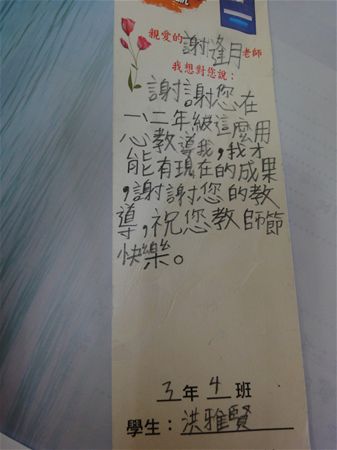 親愛的謝逢月老師
我想對您說：
謝謝您在
一二年級這麼用
心教導我，我才
能有現在的成果
，謝謝您的教
導，祝您教師節
快樂。
3年4班
學生：洪雅賢